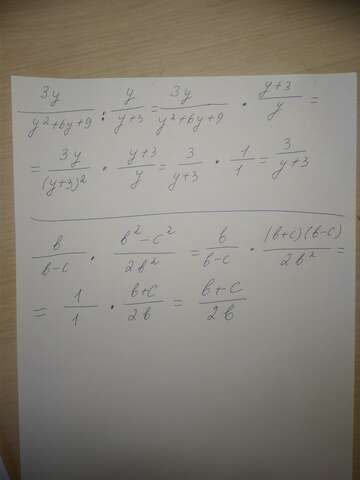 3y/(y²+6y+9) : y/(y+3) = 3y/(y²+6y+9) · (y+3)/y =
= 3y/(y+3)² · (y+3)/y = 3/(y+3) · 1/1 = 3/(y+3)
b/(b-c) · (b²-c²)/(2b²) = b/(b-c) · (b+c)(b-c)/(2b²) =
= 1/1 · (b+c)/(2b) = (b+c)/(2b)